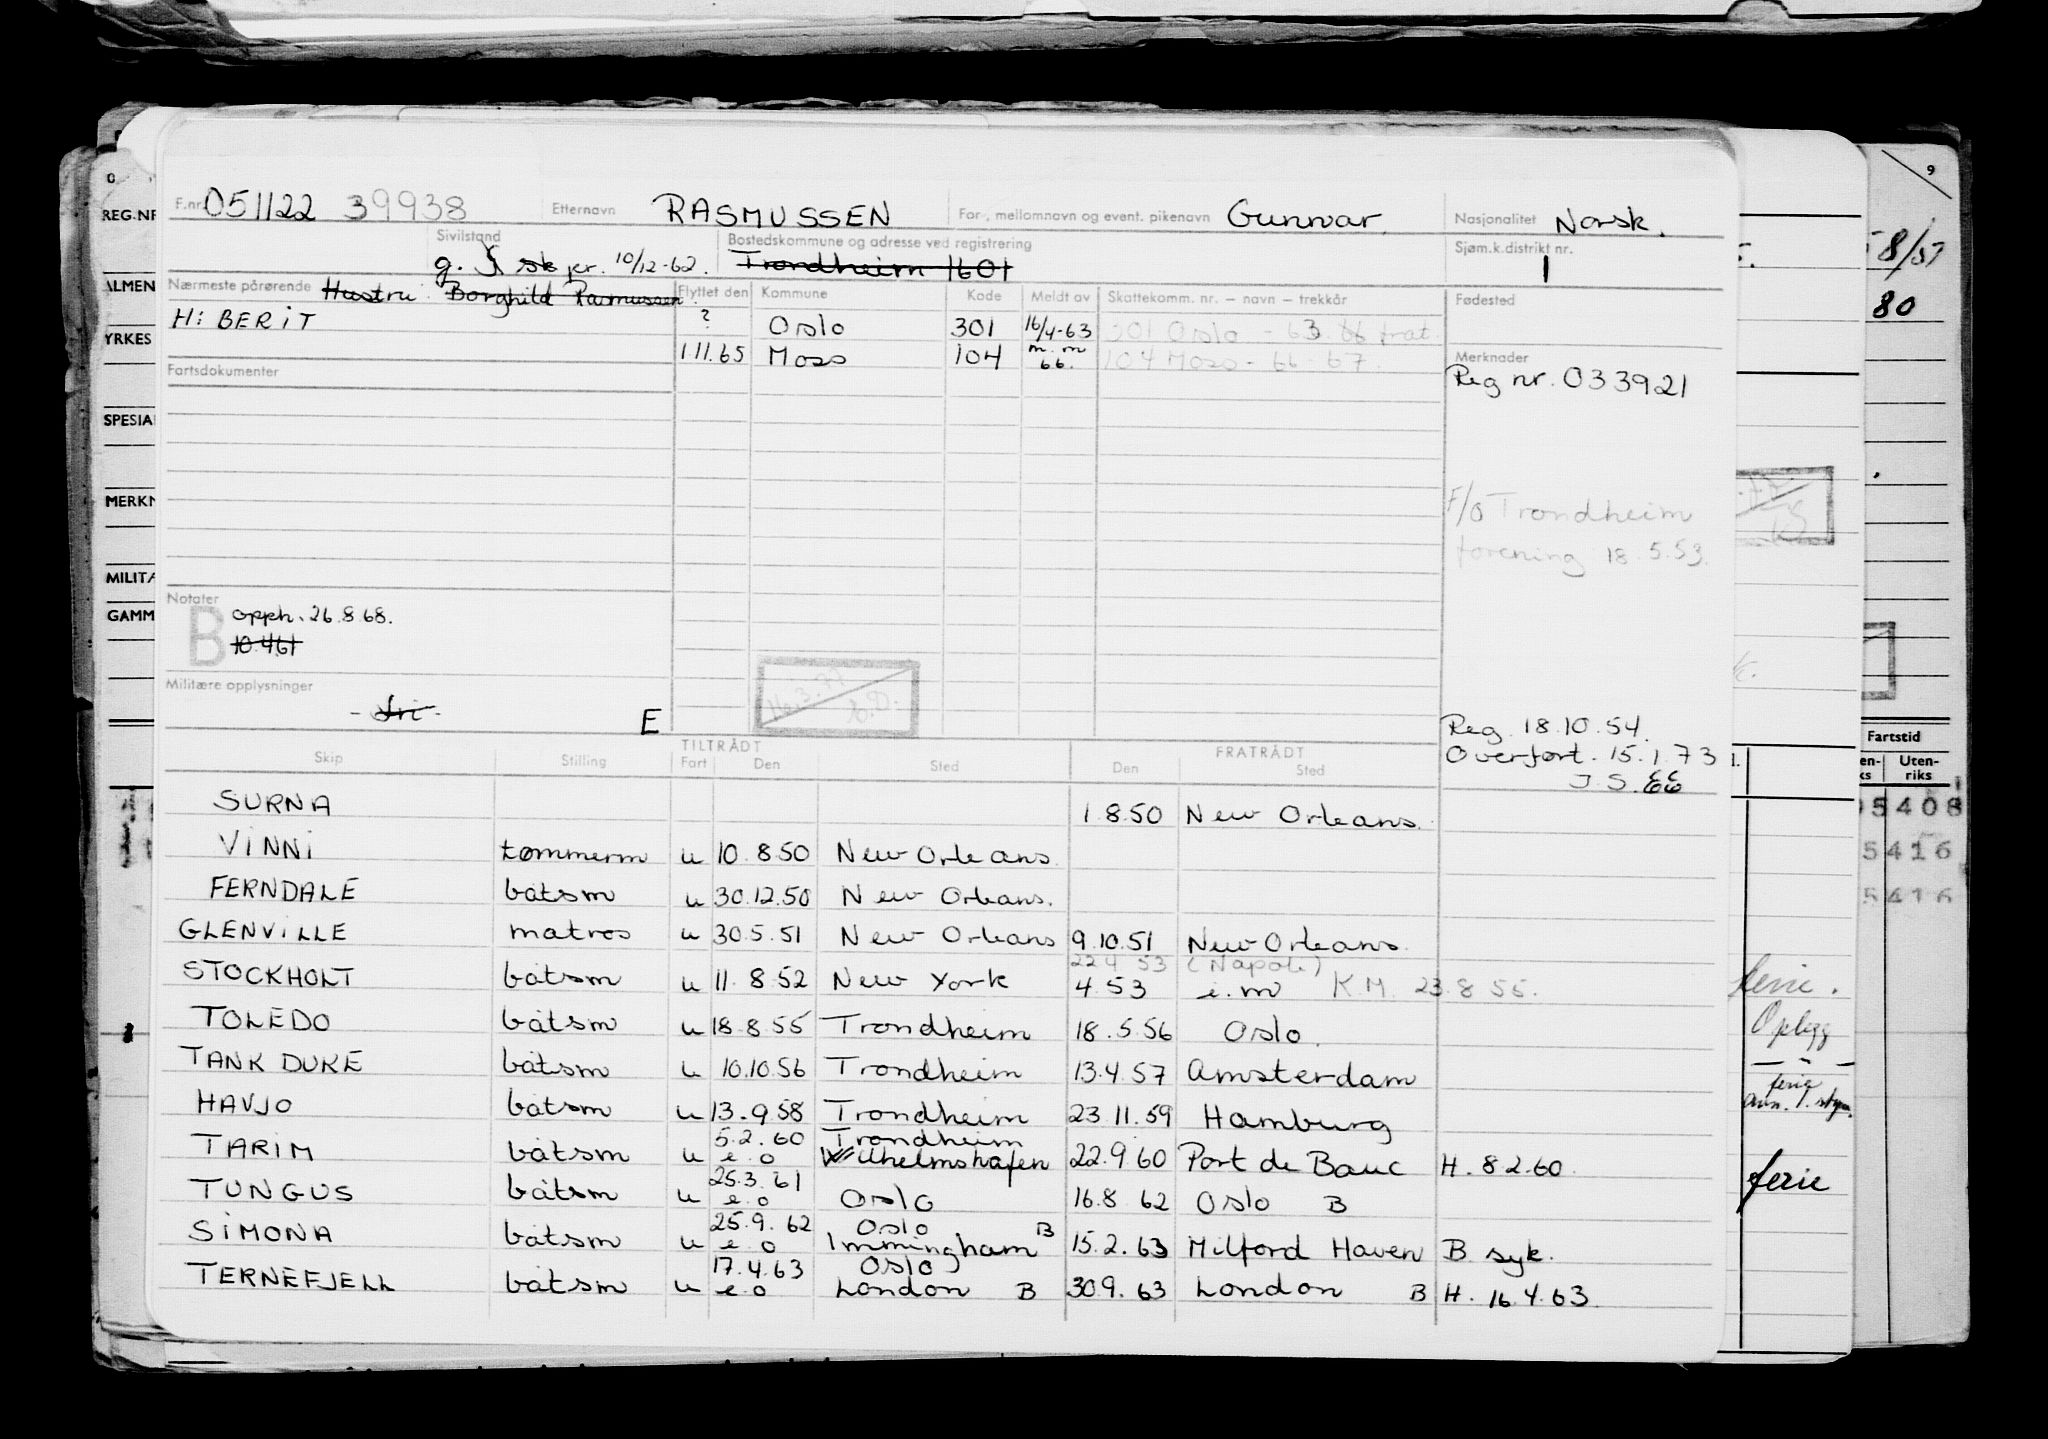 F.nr. 051122 39938 Etternavn RASMUSSEN For-, mellomnavn og event. pikenavn Gunnar. Nasjonalitet Norsk.
Sivilstand g. skjer. 10/12-62. Bostedskommune og adresse ved registrering Trondheim 1601 Sjøm.k.distrikt nr. 1
Nærmeste pårørende Hustru Borghild Rasmussen Flyttet den Kommune Kode Meldt av Skattekomm. nr. – navn – trekkår Fødested
H: BERIT ? Oslo 301 16/4-63 301 Oslo - 63
1.11.65 Moss 104 m.m 66. 104 Moss - 66 - 67.
Fartsdokumenter Merknader
Reg nr. 033921
F/O Trondheim
forening 18.5.53.
Notater
B opph. 26.8.68.
10.461
Militære opplysninger
- fri - E
Reg. 18.10.54.
Overført. 15.1.73
J.S.
Skip Stilling TILTRÅDT Fart Den Sted FRATRÅDT Den Sted
SURNA 1.8.50 New Orleans.
VINNI tømmerm u 10.8.50 New Orleans.
FERNDALE båtsm u 30.12.50 New Orleans.
GLENVILLE matros u 30.5.51 New Orleans 9.10.51 New Orleans.
22.4.53 (Napoli)
STOCKHOLT båtsm u 11.8.52 New York 4.53 e.m K.M. 23.8.55.
TOLEDO båtsm u 18.8.55 Trondheim 18.5.56 Oslo.
TANK DUKE båtsm u 10.10.56 Trondheim 13.4.57 Amsterdam
HAVJO båtsm u 13.9.58 Trondheim 23.11.59 Hamburg
5.2.60 Trondheim
TARIM båtsm u e.o Wilhelmshafen 22.9.60 Port de Bouc H. 8.2.60.
25.3.61
TUNGUS båtsm u e.o Oslo 16.8.62 Oslo B
25.9.62 Oslo
SIMONA båtsm u e.o Immingham B 15.2.63 Milford Haven B. syk.
17.4.63 Oslo
TERNEFJELL båtsm u e.o London B 30.9.63 London B H. 16.4.63.
REG.NR
ALMEN
YRKES
SPESIA
MERKN
MILITÆ
GAMM
9
8/57
80
Fartstid
Uten-
riks
5408
5416
5416
ferie.
Oplegg
ferie
ferie